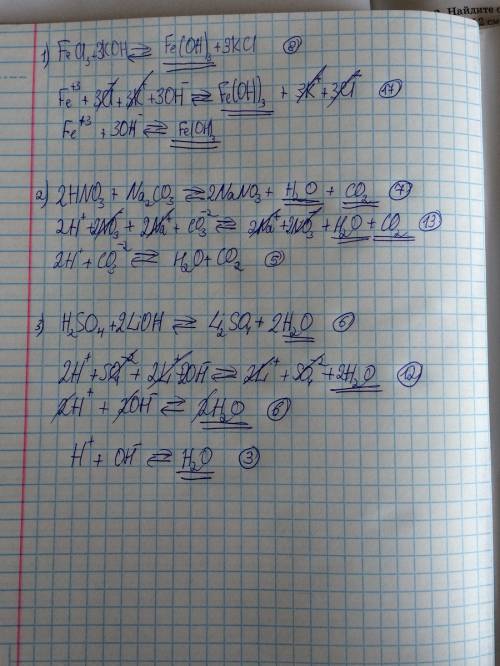 Найдите
1) FeCl₃+3KOH ⇌ Fe(OH)₃+3KCl (8)
Fe⁺³ + 3Cl⁻ + 3K⁺ + 3OH⁻ ⇌ Fe(OH)₃ + 3K⁺ + 3Cl⁻ (17)
Fe⁺³ + 3OH⁻ ⇌ Fe(OH)₃
2) 2HNO₃ + Na₂CO₃ ⇌ 2NaNO₃ + H₂O + CO₂ (7)
2H⁺ + 2NO₃⁻ + 2Na⁺ + CO₃⁻² ⇌ 2Na⁺ + 2NO₃⁻ + H₂O + CO₂ (13)
2H⁺ + CO₃⁻² ⇌ H₂O + CO₂ (5)
3) H₂SO₄ + 2LiOH ⇌ Li₂SO₄ + 2H₂O (6)
2H⁺ + SO₄⁻² + 2Li⁺ 2OH⁻ ⇌ 2Li⁺ + SO₄⁻² + 2H₂O (12)
2H⁺ + 2OH⁻ ⇌ 2H₂O (6)
H⁺ + OH⁻ ⇌ H₂O (3)